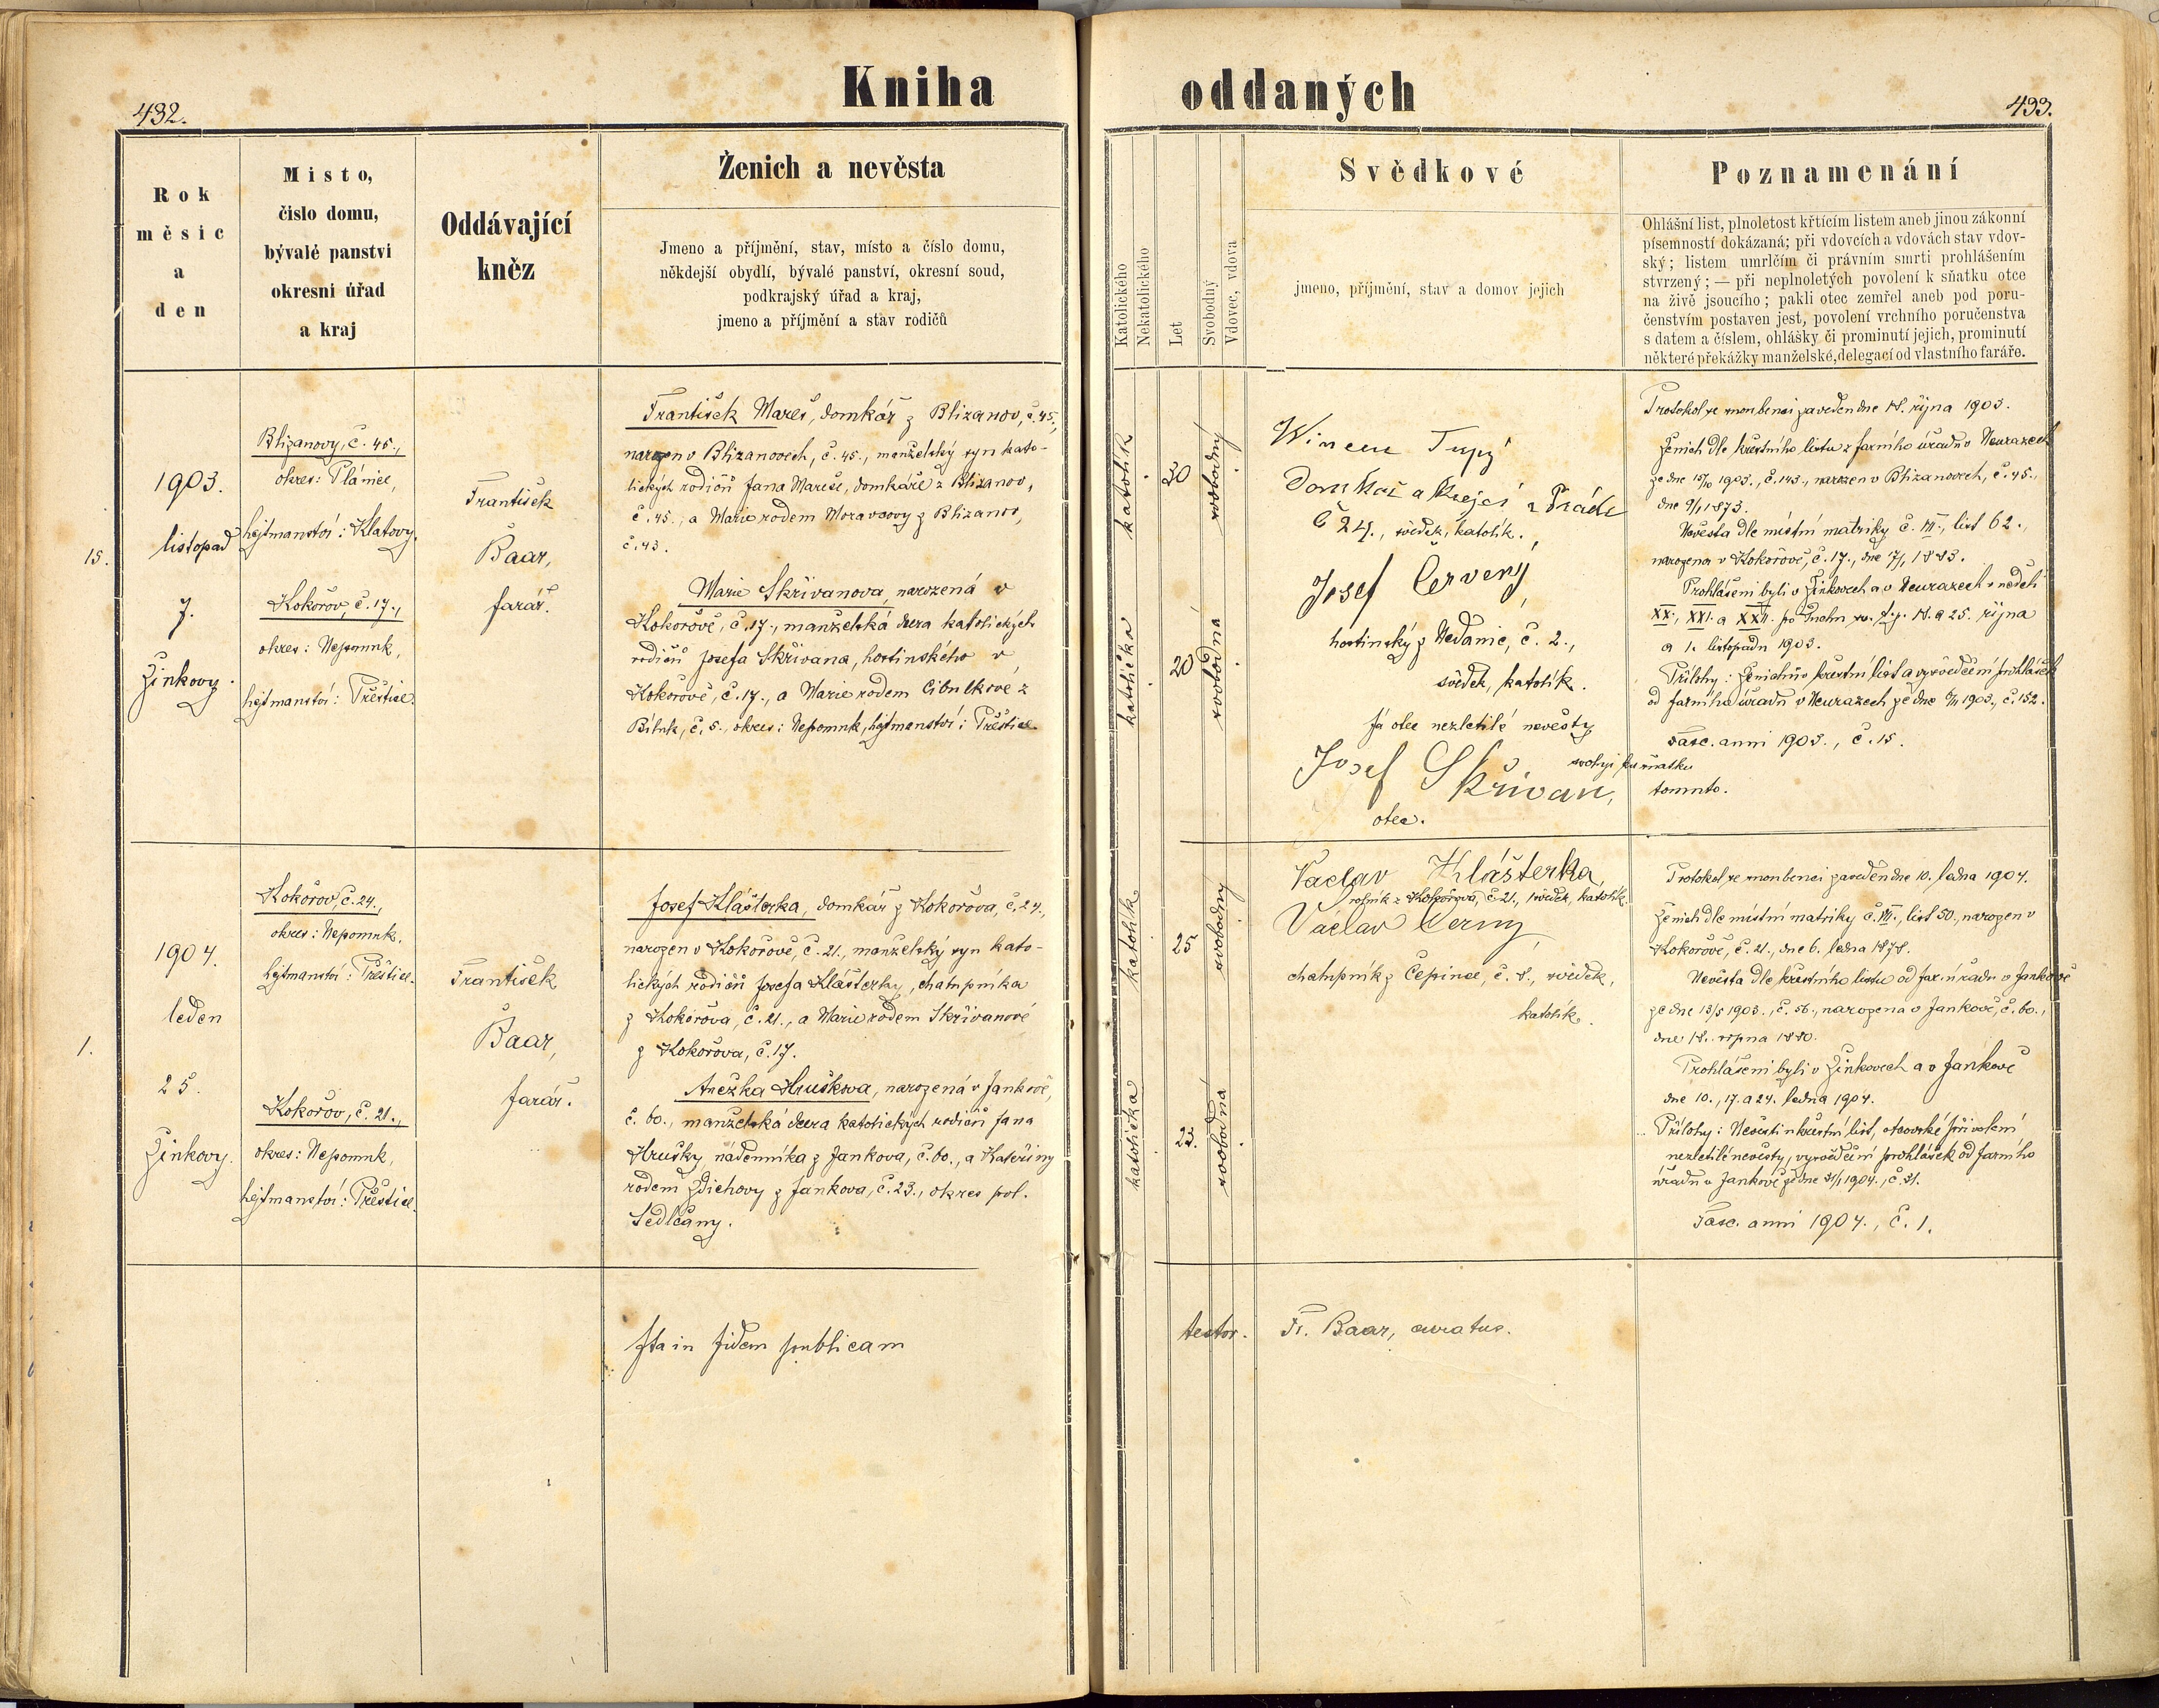 Kniha oddaných
432.
433.
Rok
měsíc
a
den
Místo,
číslo domu,
bývalé panství
okresní úřad
a kraj
Oddávající
kněz
Ženich a nevěsta
Jmeno a příjmění, stav, místo a číslo domu,
někdejší obydlí, bývalé panství, okresní soud,
podkrajský úřad a kraj,
jmeno a příjmění a stav rodičů
Katolického
Nekatolického
Let
Svobodný
Vdovec, vdova
Svědkové
jmeno, příjmění, stav a domov jejich
Poznamenání
Ohlášní list, plnoletost křtícím listem aneb jinou zákonní
písemností dokázaná; při vdovcích a vdovách stav vdov-
ský; listem umrlčím či právním smrti prohlášením
stvrzený; — při neplnoletých povolení k sňatku otce
na živě jsoucího; pakli otec zemřel aneb pod poru-
čenstvím postaven jest, povolení vrchního poručenstva
s datem a číslem, ohlášky či prominutí jejich, prominutí
některé překážky manželské, delegací od vlastního faráře.
15.
1903.
listopad
7.
Žinkovy.
Blizanovy, č. 45.,
okres: Plánice,
hejtmanství: Klatovy.
Kokořov, č. 17.,
okres: Nepomuk,
hejtmanství: Přeštice.
František
Baar,
farář.
František Mareš, domkář z Blizanov, č. 45.,
narozen v Blizanovech, č. 45., manželský syn kato-
lických rodičů Jana Mareše, domkáře z Blizanov,
č. 45., a Marie rodem Moravcovy z Blizanov,
č. 43.
Marie Skřivanova, narozená v
Kokořově, č. 17., manželská dcera katolických
rodičů Josefa Skřivana, hostinského v
Kokořově, č. 17., a Marie rodem Cibulkové z
Bítuk, č. 5., okres: Nepomuk, hejtmanství: Přeštice.
katolík
30
svobodný
katolička
20
svobodná
Tupý
Domkař a krejčí z
č 24., svědek, katolík.
Josef Červený,
hostinský z Nedanic, č. 2.,
svědek, katolík.
Já otec nezletilé nevěsty
svoluji ku sňatku
Josef Skřivan, tomuto.
otec.
Protokol ve snoubenci zaveden dne 18. října 1903.
Ženich dle křestního listu z farního úřadu v Neurazech
ze dne 15/10 1903., č. 143., narozen v Blizanovech, č. 45.,
dne 9/1 1873.
Nevěsta dle místní matriky č. VII., list 62.,
narozena v Kokořově, č. 17., dne 7/1 1883.
Prohlášeni byli v Žinkovech a v Neurazech v neděli
XX., XXI. a XXII. po Duchu sv. t. j. 18. a 25. října
a 1. listopadu 1903.
Přílohy: Ženichův křestní list a vysvědčení prohlášek
od farního úřadu v Neurazech ze dne 6/11 1903., č. 152.
Fasc. anni 1903., č. 15.
1.
1904.
leden
25.
Žinkovy.
Kokořov, č. 24.,
okres: Nepomuk.
hejtmanství: Přeštice.
Kokořov, č. 21.,
okres: Nepomuk,
hejtmanství: Přeštice.
František
Baar,
farář.
Josef Klášterka, domkář z Kokořova, č. 24.,
narozen v Kokořově, č. 21., manželský syn kato-
lických rodičů Josefa Klášterky, chalupníka
z Kokořova, č. 21., a Marie rodem Skřivanové
z Kokořova, č. 17.
Anežka Hrušková, narozená v Jankově,
č. 60., manželská dcera katolických rodičů Jana
Hrušky nádenníka z Jankova, č. 60., a Kateřiny
rodem Zdichovy z Jankova, č. 23., okres pol.
Sedlčany.
katolík
25
svobodný
katolička
23.
svobodná
Václav Klášterka,
rolník z Kokořova, č. 21., svědek, katolík.
Václav Černý,
chalupník z Čepince, č. 8., svědek,
katolík.
Protokol ve snoubenci zaveden dne 10. ledna 1904.
Ženich dle místní matriky č. VII., list 50., narozen v
Kokořově, č. 21., dne 6. ledna 1878.
Nevěsta dle křestního listu od far. úřadu v Jankově
ze dne 13/5 1903., č. 56., narozena v Jankově, č. 60.,
dne 18. srpna 1880.
Prohlášeni byli v Žinkovech a v Jankově
dne 10., 17. a 24. ledna 1904.
Přílohy: Nevěstin křestní list, otcovské přivolení
nezletilé nevěsty, vysvědčení prohlášek od farního
úřadu v Jankově ze dne 31/1 1904., č. 31.
Fasc. anni 1904., č. 1.
Ita in fidem publicam
testor.
Fr. Baar, curatus.